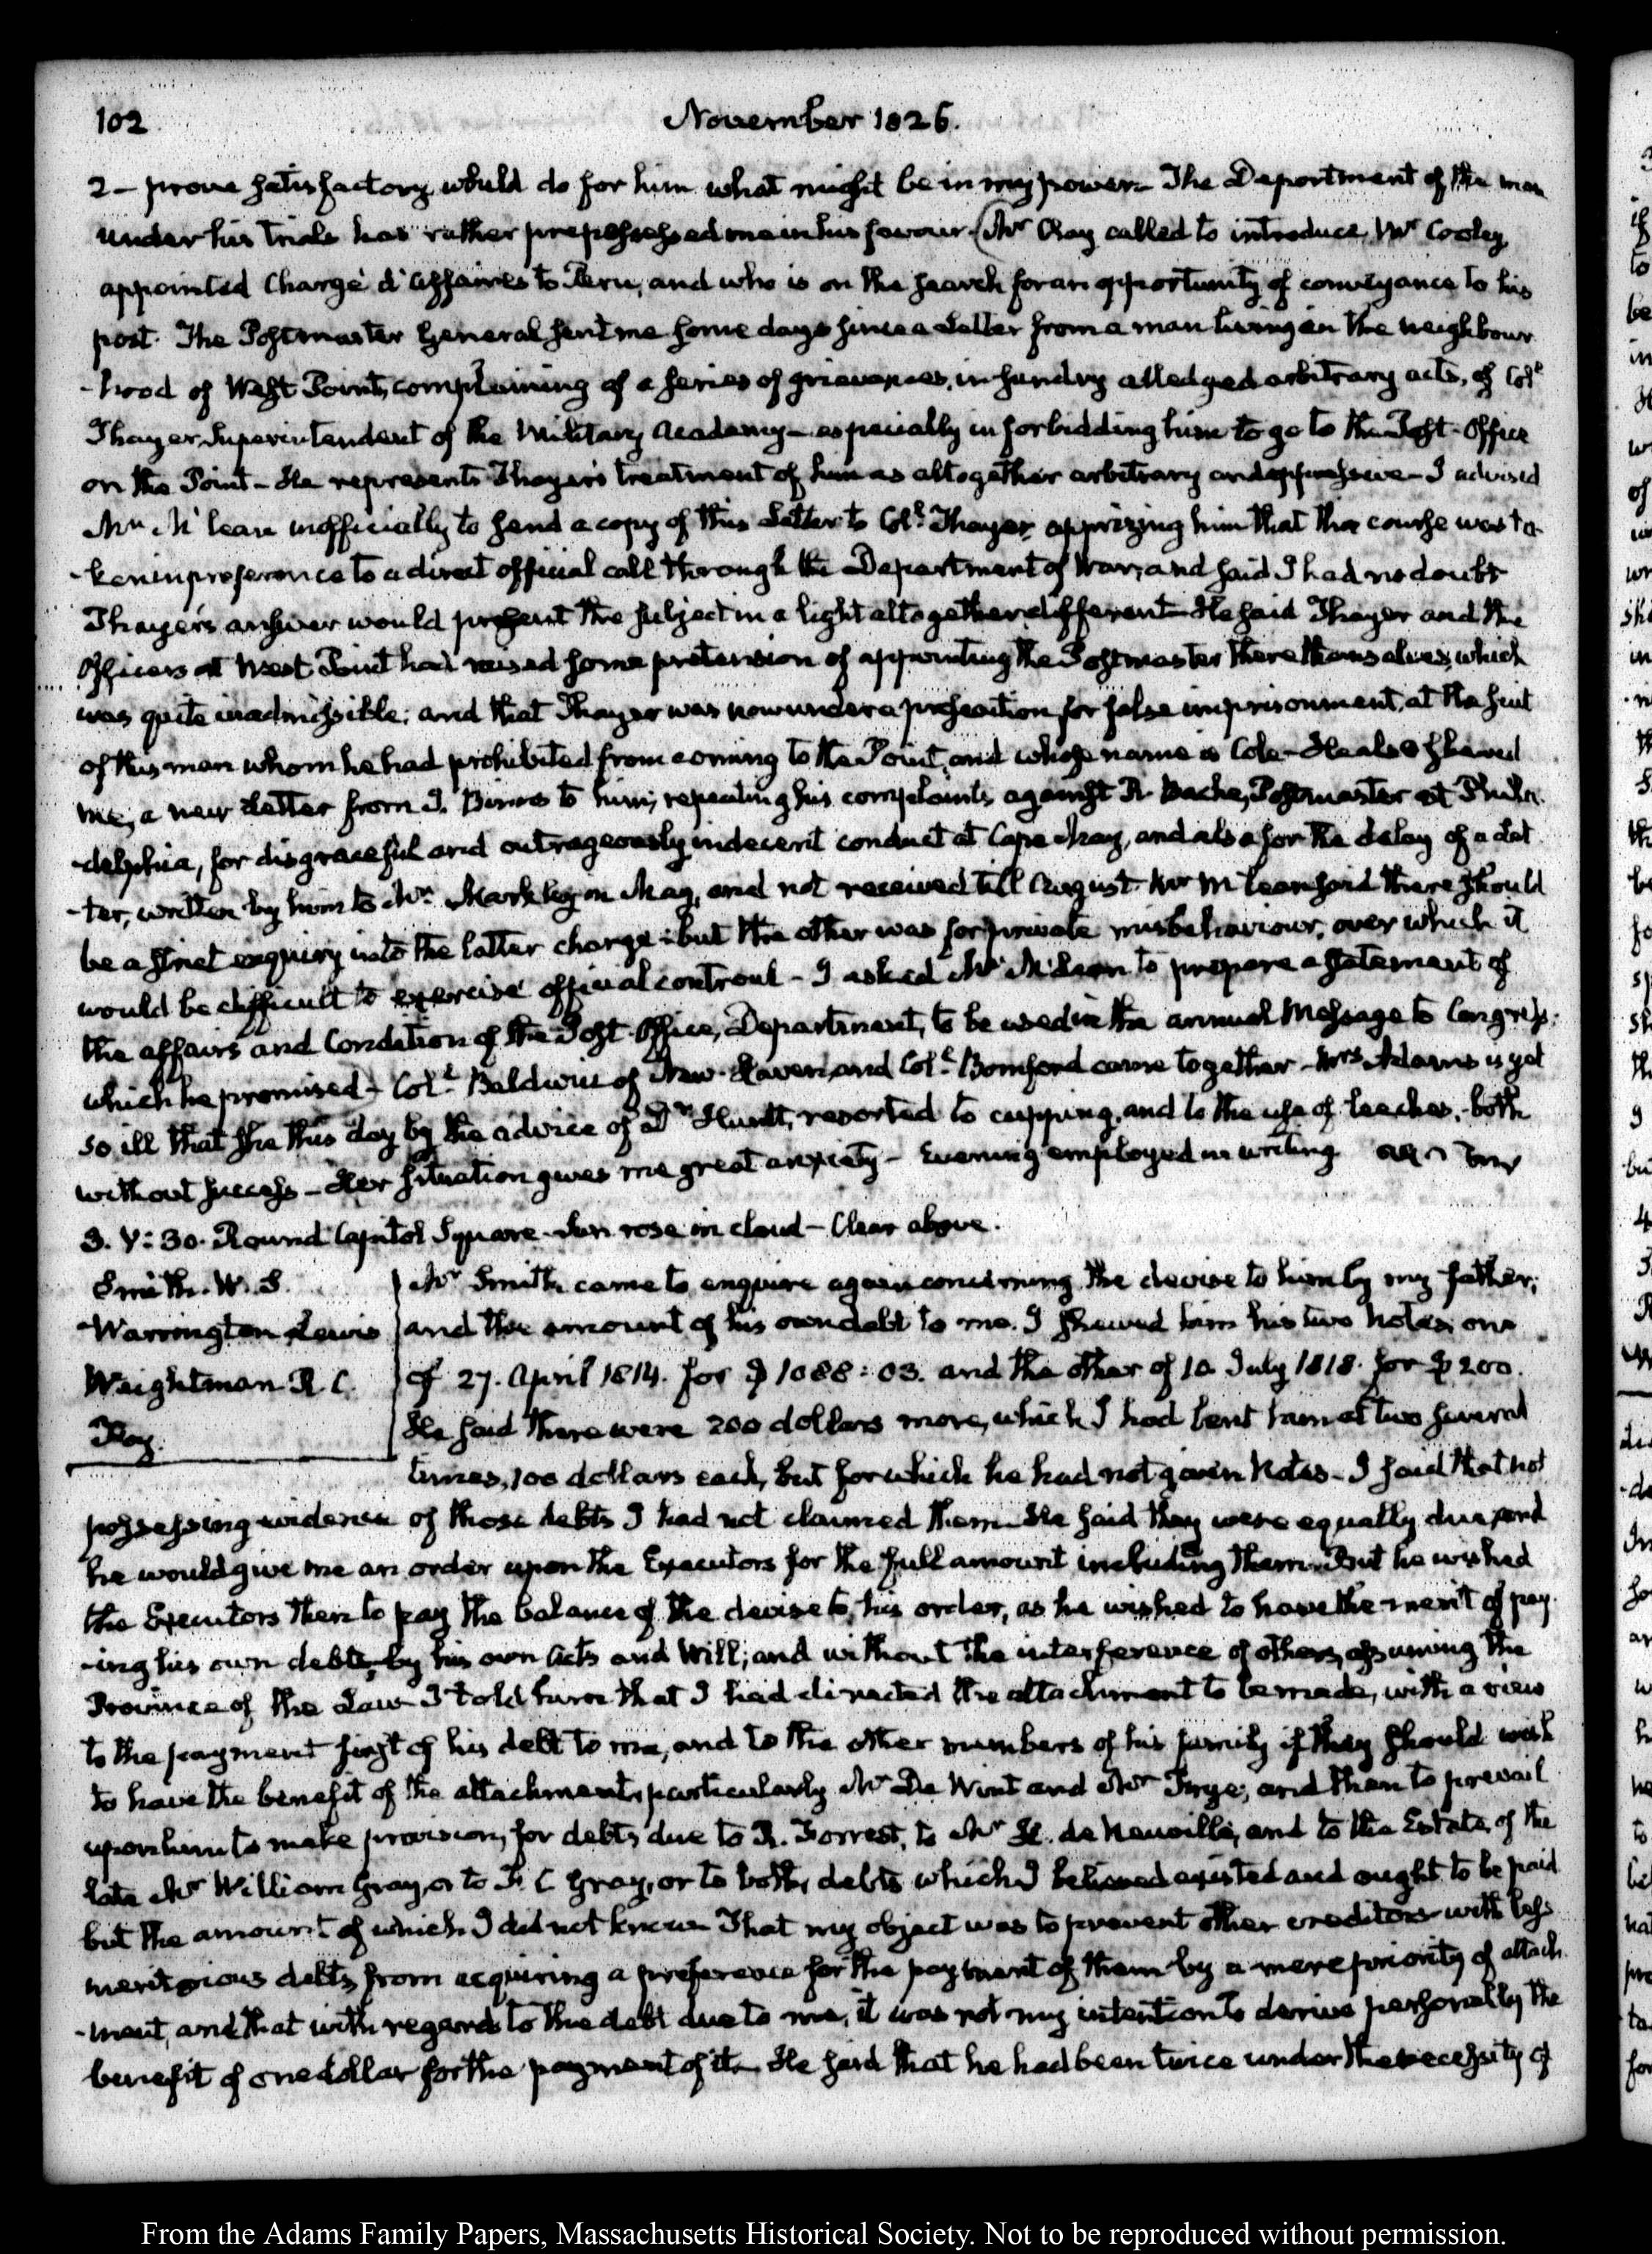 102
November 1826.
2 - prove satisfactory, would do for him what might be in my power. The Deportment of the man
under his trials has rather prepossessed me in his favour. (Mr Clay called to introduce Mr Cooley,
appointed Chargé d'affaires to Peru, and who is on the search for an opportunity of conveyance to his
post. The Postmaster General sent me some days since a Letter from a man living in the neighbour
-hood of West Point, complaining of a series of grievances, in sundry alledged arbitrary acts, of Coll
Thayer Superintendent of the Military Academy - especially in forbidding him to go to the Post-Office
on the Point - He represents Thayer's treatment of him as altogether arbitrary and oppressive - I advised
Mr McLean inofficially to send a copy of this Letter to Coll Thayer, apprizing him that this course was ta-
-ken in preference to a direct official call through the Department of War, and said I had no doubt
Thayer's answer would present the subject in a light altogether different - He said Thayer and the
Officers at West Point had raised some pretension of appointing the Postmaster there themselves, which
was quite inadmissible; and that Thayer was now under a prosecution for false imprisonment, at the suit
of this man whom he had prohibited from coming to the Point, and whose name is Cole - He also shewed
me, a new Letter from J. Binns to him; repeating his complaints against R. Bache, Postmaster at Phila-
-delphia, for disgraceful and outrageously indecent conduct at Cape May, and also for the delay of a Let
-ter, written by him to Mr Markley in May, and not received till August. Mr McLean said there should
be a strict enquiry into the latter charge; but the other was for private misbehaviour, over which it
would be difficult to exercise official controul - I asked Mr McLean to prepare a statement of
the affairs and Condition of the Post-Office, Department, to be used in the annual Message to Congress;
which he promised - Coll Baldwin of New-Haven, and Coll Bomford came together - Mrs Adams is yet
so ill that she this day by the advice of Dr Huntt, resorted to cupping, and to the use of leeches, - both
without success - Her situation gives me great anxiety - Evening employed in writing
3. V: 30. Round Capitol Square - Sun rose in cloud - Clear above.
Smith. W. S.
Warrington Lewis
Weightman R. C.
Ray.
Mr Smith came to enquire again concerning the devise to him by my father;
and the amount of his own debt to me. I shewed him his two Notes; one
of 27. April 1814. for $ 1088: 03. and the other of 10. July 1818. for $ 200.
He said there were 200 dollars more, which I had lent him at two several
times, 100 dollars each, but for which he had not given Notes - I said that not
possessing evidence of those debts I had not claimed them. He said they were equally due, and
he would give me an order upon the Executors for the full amount including them. But he wished
the Executors then to pay the balance of the devise to his order, as he wished to have the merit of pay-
-ing his own debts, by his own acts and Will; and without the interference of others, assuming the
Province of the Law - I told him that I had directed the attachment to be made, with a view
to the payment first of his debt to me, and to the other members of his family if they should wish
to have the benefit of the attachment, particularly Mr De Wint and Mr Frye; and then to prevail
upon him to make provision, for debts due to R. Forrest, to Mr H. de Neuville, and to the Estate of the
late Mr William Gray, or to F. C Gray, or to both, debts which I believed existed and ought to be paid
but the amount of which I did not know - That my object was to prevent other creditors with less
meritorious debts, from acquiring a preference for the payment of them by a mere priority of attach
-ment, and that with regard to the debt due to me, it was not my intention to derive personally the
benefit of one dollar for the payment of it. He said that he had been twice under the necessity of
From the Adams Family Papers, Massachusetts Historical Society. Not to be reproduced without permission.